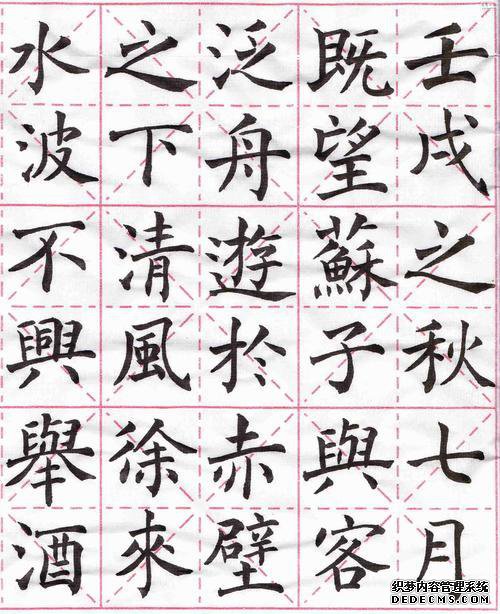 壬戌之秋七月
既望蘇子與客
泛舟遊於赤壁
之下清風徐來
水波不興舉酒
织梦内容管理系统
DEDECMS.COM